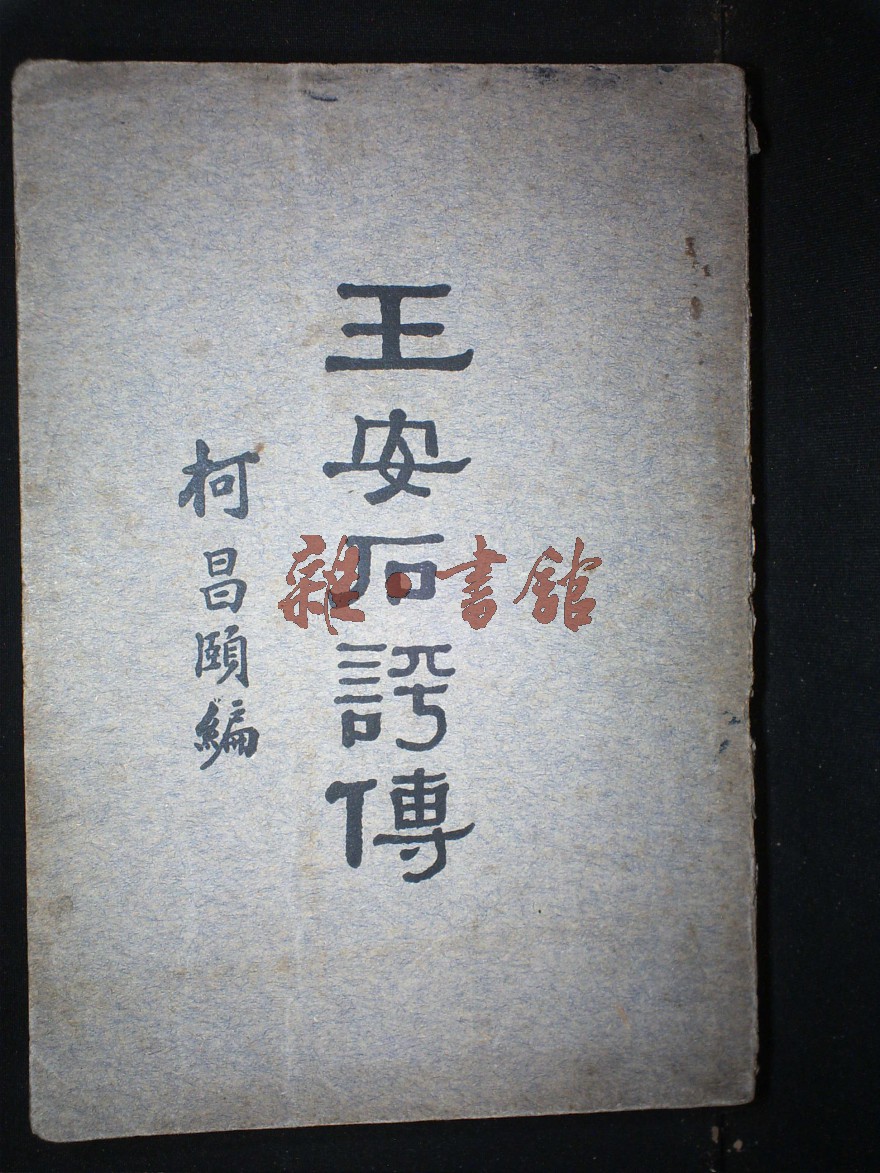 王安石評傳
柯昌頤編
雜·書館